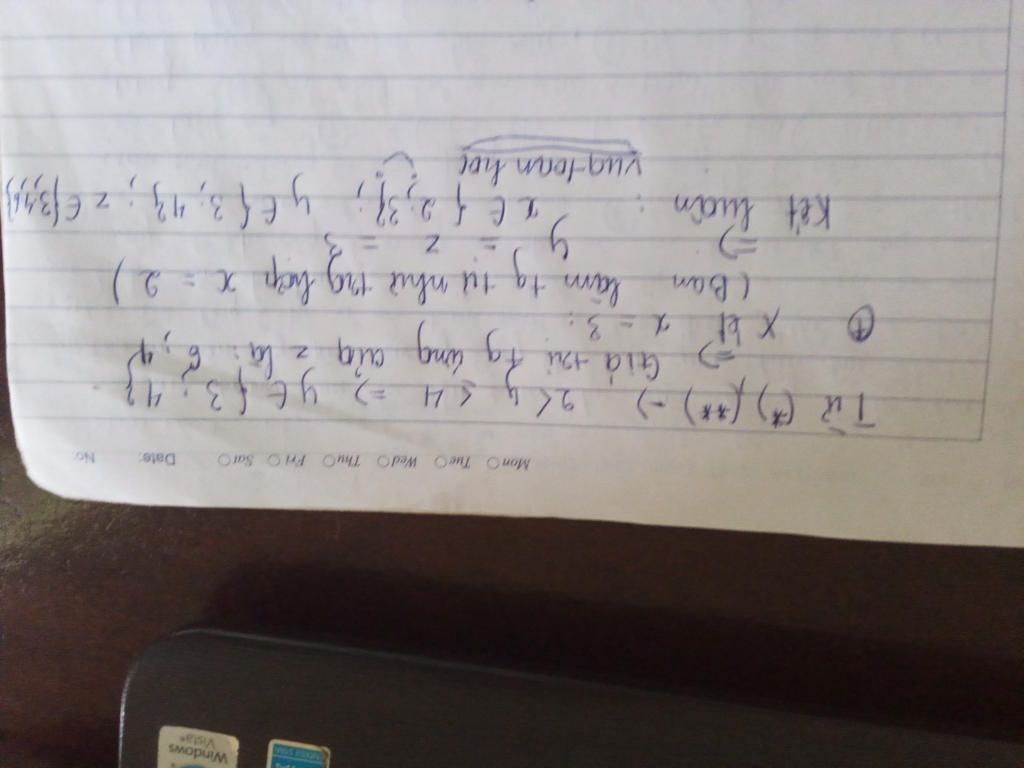 Mon Tue Wed Thu Fri Sat Date: No:
Từ (*), (**) => 2 < y ≤ 4 => y ∈ {3; 4}
=> Giá trị tg ứng của z là: 6; 4
+ Xét x = 3:
(Bạn làm tg tự như trg hợp x = 2)
=> y = z = 3
Kết luận: x ∈ {2; 3}; y ∈ {3; 4}; z ∈ {3; 4; 6}
vuatoanhoc
Windows Vista